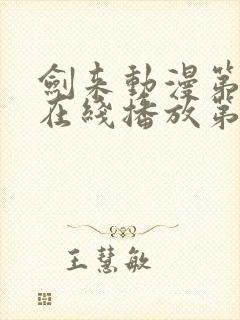 劍来動漫第
在綫播放第
王慧敏